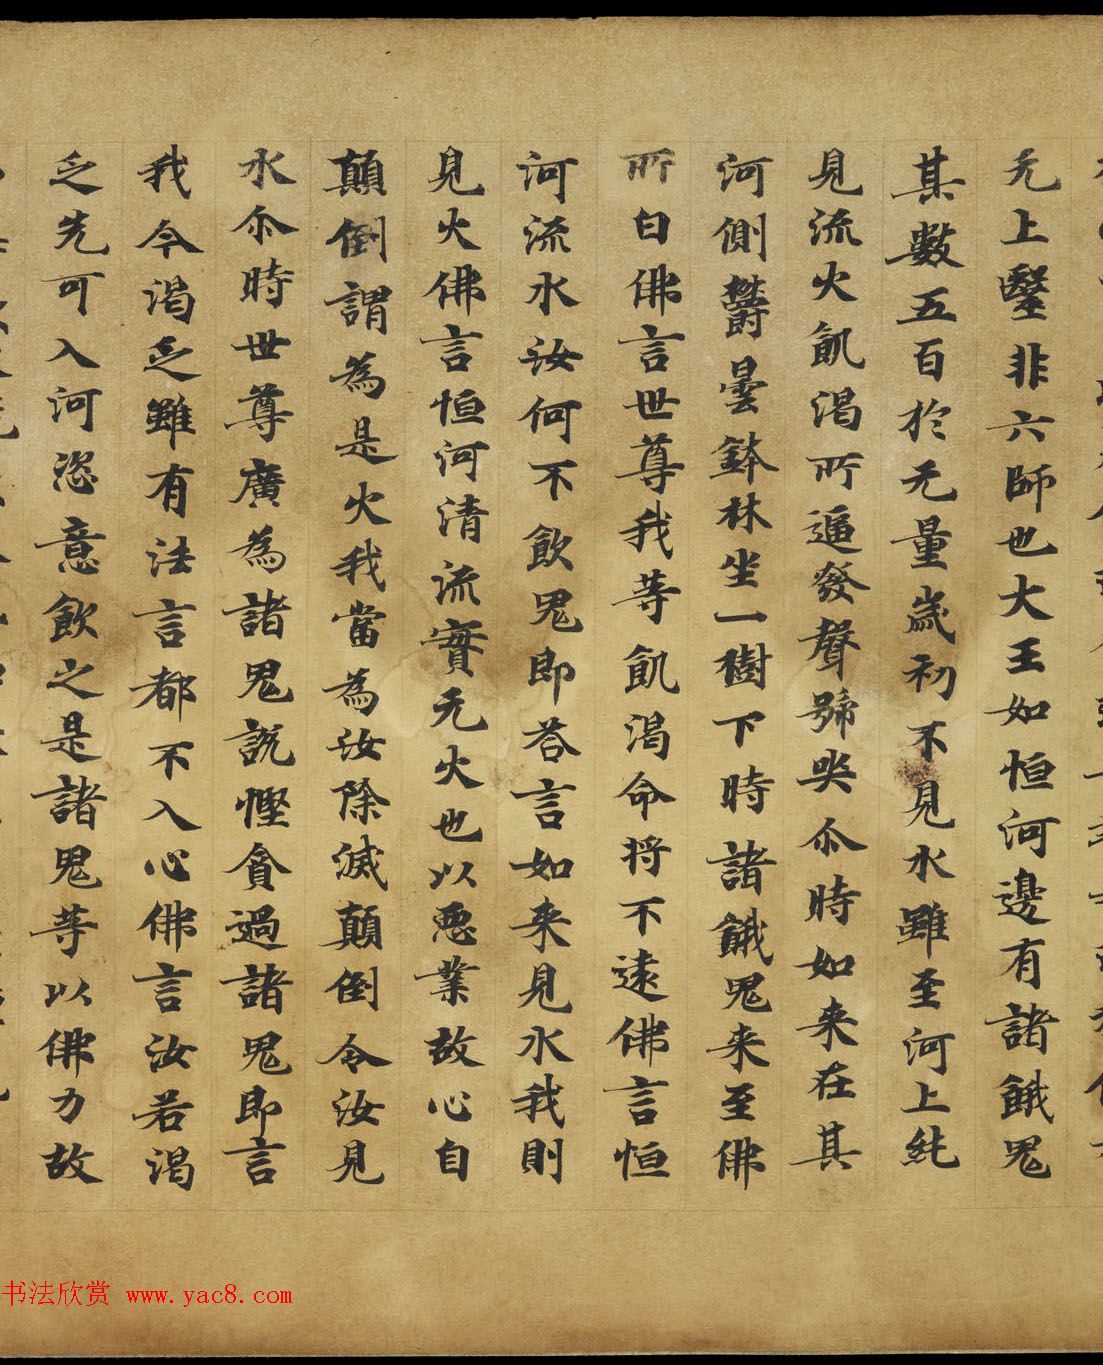 无上毉非六師也大王如恒河邊有諸餓鬼
其數五百於无量歲初不見水雖至河上純
見流火飢渴所逼發聲號哭尒時如来在其
河側欝曇鉢林坐一樹下時諸餓鬼来至佛
所白佛言世尊我等飢渴命将不遠佛言恒
河流水汝何不飲鬼即荅言如来見水我則
見火佛言恒河清流實无火也以惡業故心自
顛倒謂為是火我當為汝除滅顛倒令汝見
水尒時世尊廣為諸鬼説慳貪過諸鬼即言
我今渴乏雖有法言都不入心佛言汝若渴
乏先可入河恣意飲之是諸鬼等以佛力故
书法欣赏 www.yac8.com